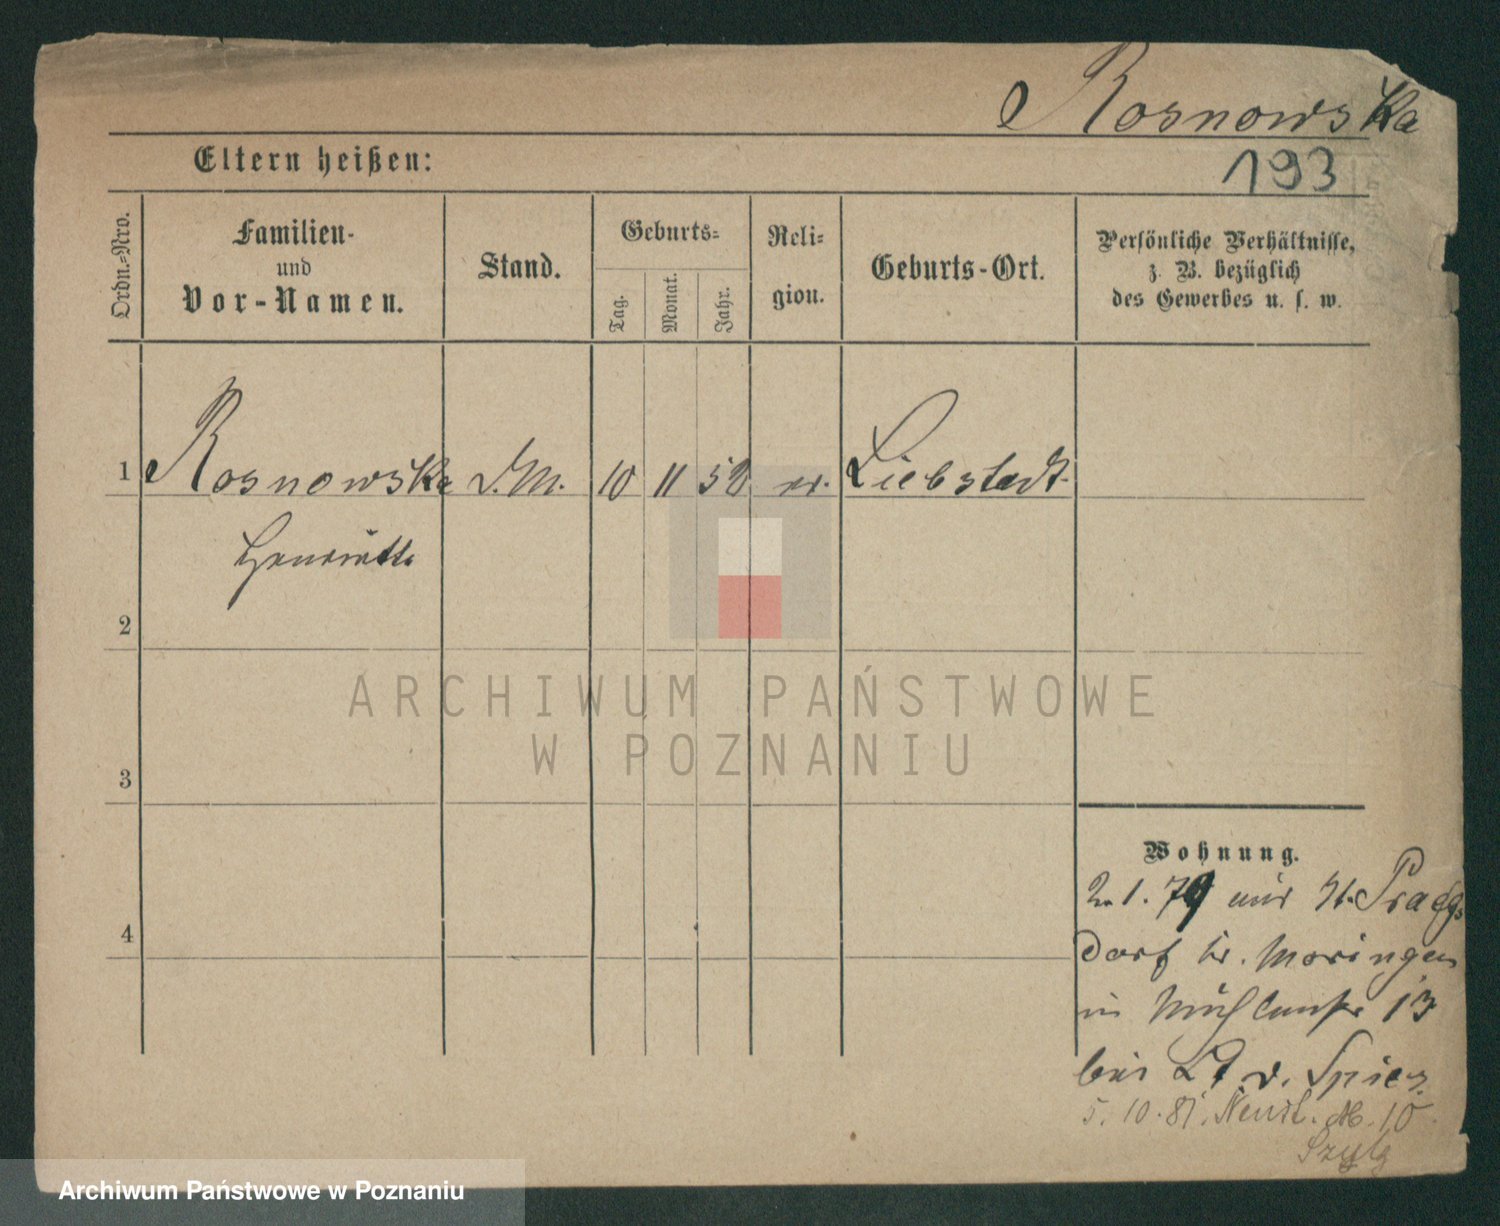 Rosnowska
193
Eltern heißen:
Ordn.-Nro.
Familien-
und
Vor-Namen.
Stand.
Geburts-
Tag.
Monat.
Jahr.
Reli-
gion.
Geburts-Ort.
Persönliche Verhältnisse,
z. B. bezüglich
des Gewerbes u. s. w.
1 Rosnowska D.M. 10 11 52 ev. Liebstadt
Henriette
2
3
4
Wohnung.
2.1.79 aus
dorf Kr. Moringen
in Mühlenstr 13
bei Lt v. Spies
5.10.81. Neust. M. 10
Szulz
ARCHIWUM PAŃSTWOWE
W POZNANIU
Archiwum Państwowe w Poznaniu